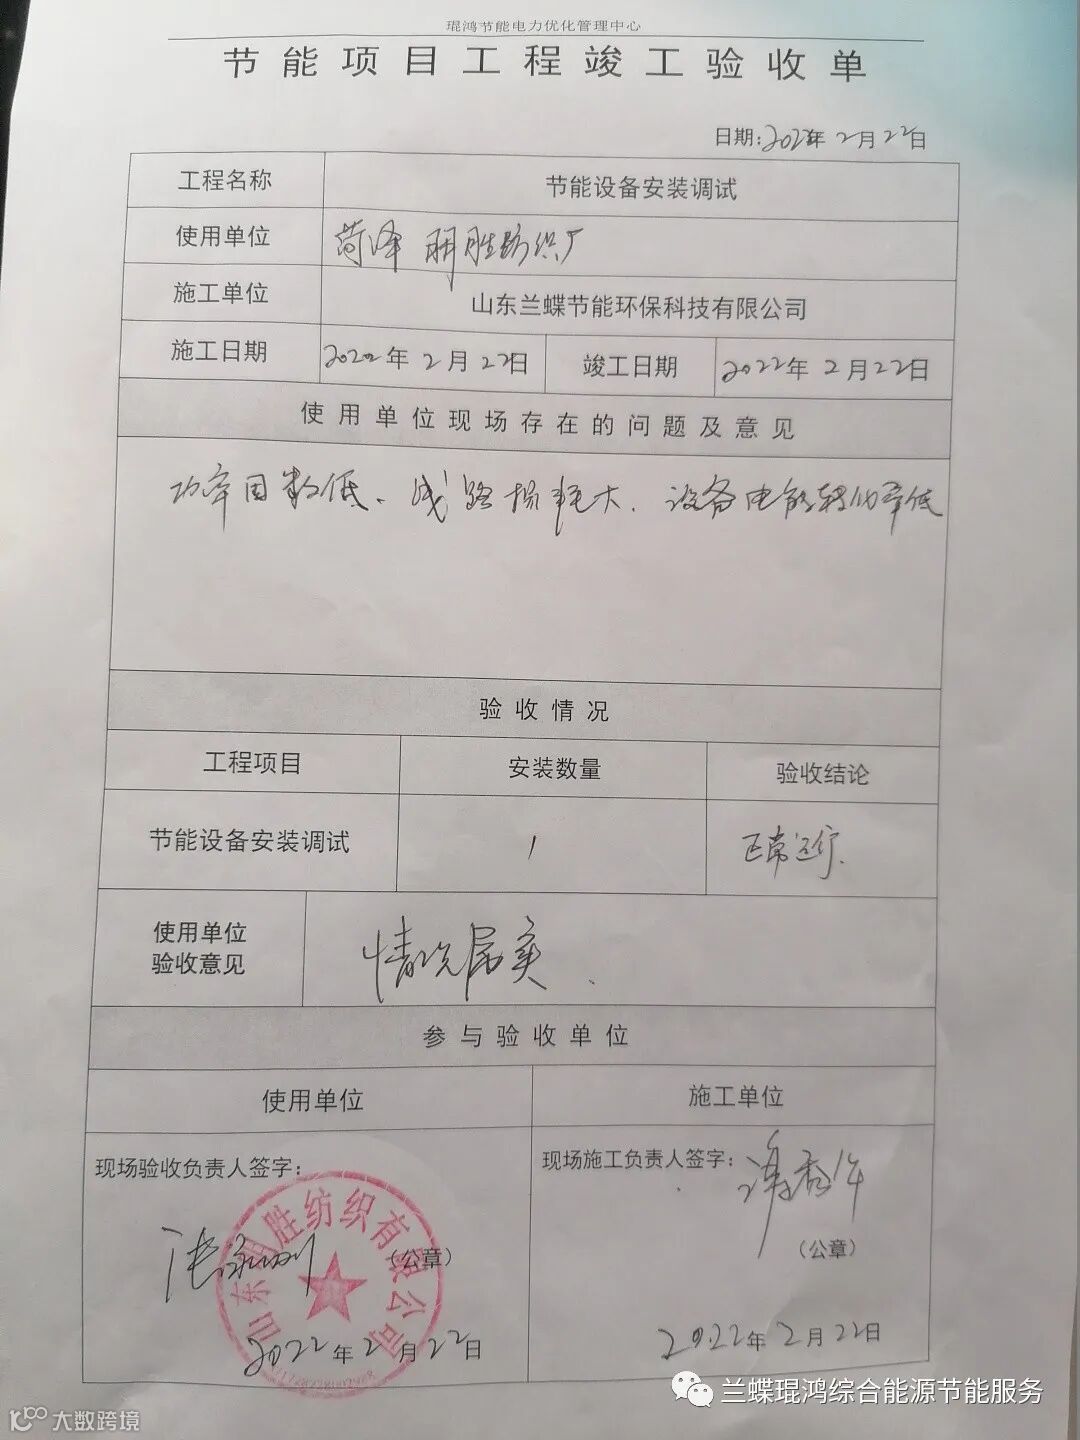 琨鸿节能电力优化管理中心
节能项目工程竣工验收单
日期:2022年2月22日
工程名称 节能设备安装调试
使用单位 菏泽 胜纺织厂
施工单位 山东兰蝶节能环保科技有限公司
施工日期 2022年2月22日 竣工日期 2022年2月22日
使用单位现场存在的问题及意见
功率因数低、线路损耗大、设备电能转化率低
验收情况
工程项目 安装数量 验收结论
节能设备安装调试 1 正常运行.
使用单位
验收意见
情况属实.
参与验收单位
使用单位 施工单位
现场验收负责人签字:
现场施工负责人签字:
(公章)
(公章)
山东 胜纺织有限公司
2022年2月22日
2022年2月22日
兰蝶琨鸿综合能源节能服务
大数跨境